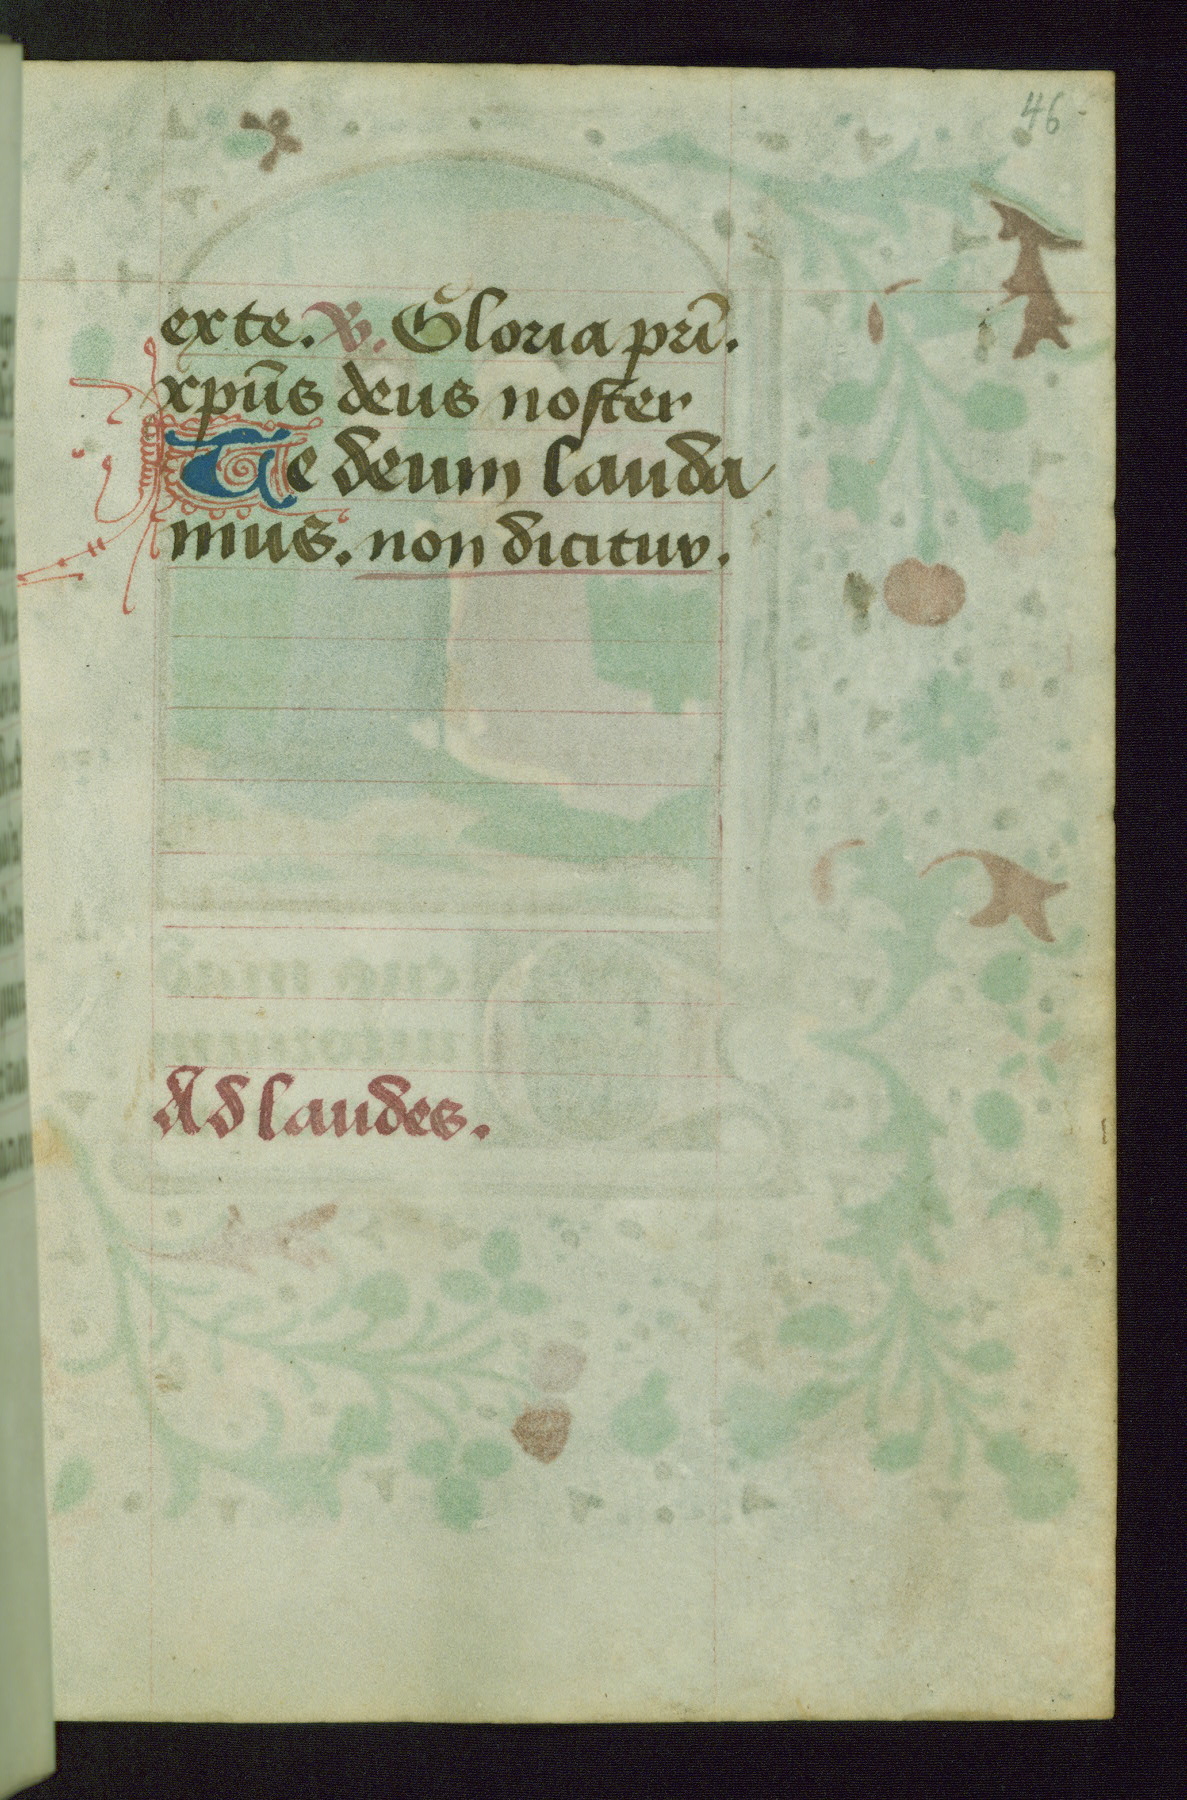 46
exte. V. Gloria pri̅.
xpu̅s deus noster
Te deum lauda
mus. non dicitur.
Ad laudes.